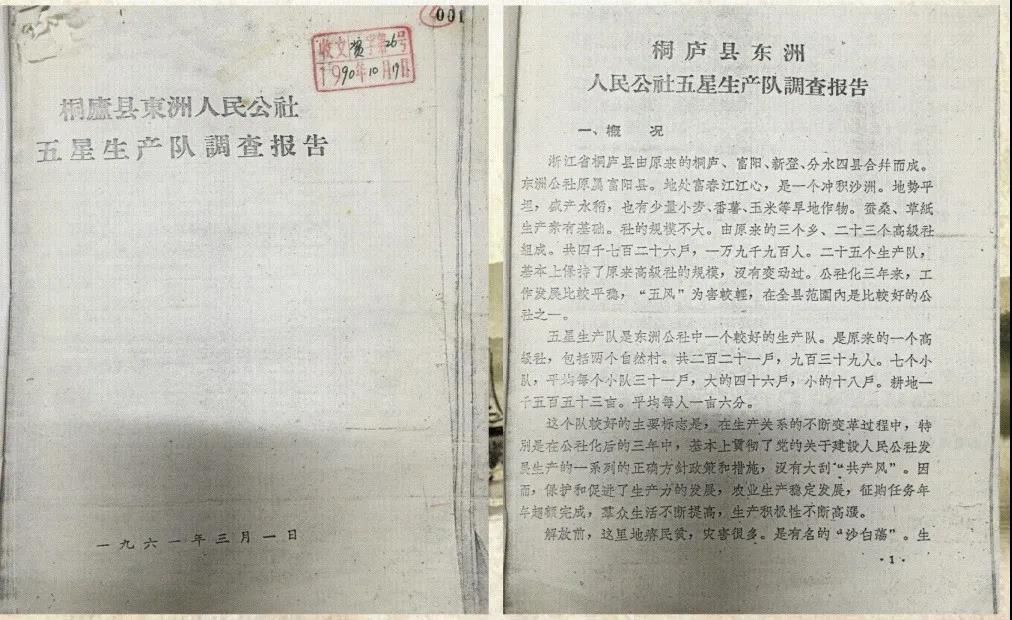 001
收文 字第26号
1990年10月19日
桐廬县東洲人民公社
五星生产队調查报告
一九六一年三月一日
桐庐县东洲
人民公社五星生产队調查报告
一、概　况
浙江省桐庐县由原来的桐庐、富阳、新登、分水四县合幷而成。
东洲公社原属富阳县。地处富春江江心，是一个冲积沙洲。地势平
坦，盛产水稻，也有少量小麦、番薯、玉米等旱地作物。蚕桑、草紙
生产素有基础。社的规模不大。由原来的三个乡、二十三个高級社
組成。共四千七百二十六戶，一万九千九百人。二十五个生产队，
基本上保持了原来高級社的规模，沒有变动过。公社化三年来，工
作发展比較平稳，“五风”为害較輕，在全县范圍內是比較好的公
社之一。
五星生产队是东洲公社中一个較好的生产队。是原来的一个高
級社，包括两个自然村。共二百二十一戶，九百三十九人。七个小
队，平均每个小队三十一戶，大的四十六戶，小的十八戶。耕地一
千五百五十三亩。平均每人一亩六分。
这个队較好的主要标志是，在生产关系的不断变革过程中，特
別是在公社化后的三年中，基本上貫彻了党的关于建設人民公社发
展生产的一系列的正确方針政策和措施，沒有大刮“共产风”。因
而，保护和促进了生产力的发展，农业生产稳定发展，征购任务年
年超額完成，羣众生活不断提高，生产积极性不断高漲。
解放前，这里地瘠民貧，灾害很多。是有名的“沙白荡”。生
·1·